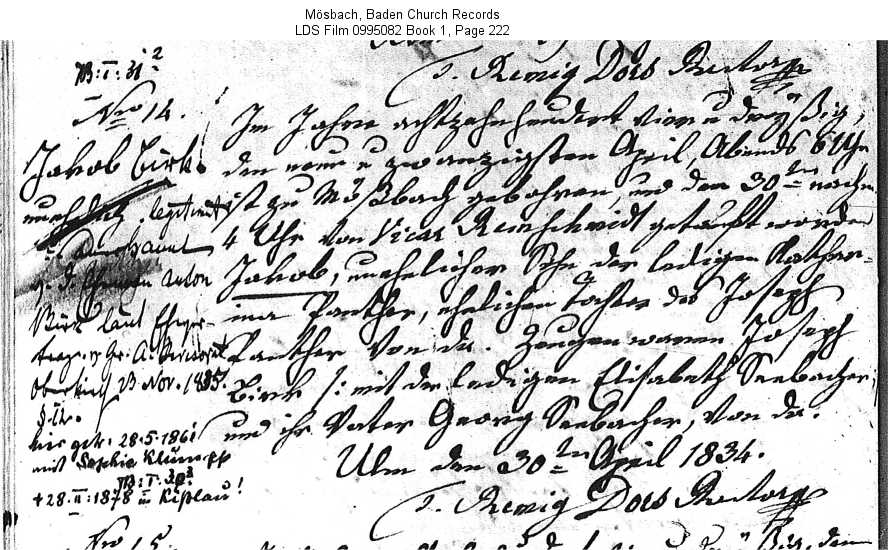 Mösbach, Baden Church Records
LDS Film 0995082 Book 1, Page 222
T. Remig Dors Rector
B: I: 31²
Nro 14.
Jakob Birk!
unehelich, legitimirt
Anton
Birk laut
Oberkirch 23 Nov. 1835
§ II.
hier getr. 28.5.1861
mit Sophia Klumpp
B: I: 30²
+ 28. II: 1878 in Kißlau!
Im Jahre achtzehnhundert vier u dreyßig,
den neun u zwanzigsten April, Abends 6 Uhr
ist zu Mößbach gebohren, und den 30ten nachm.
4 Uhr von Vicar Remschmidt getauft worden
Jakob, unehelicher Sohn der ledigen Kathar-
ina Panther, ehelichen Tochter des Joseph
Panther von da. Zeugen waren Joseph
Birk /: mit der ledigen Elisabeth Seebacher,
und ihr Vater Georg Seebacher, von da.
Ulm den 30ten April 1834.
T. Remig Dors Rector
Nro 15.